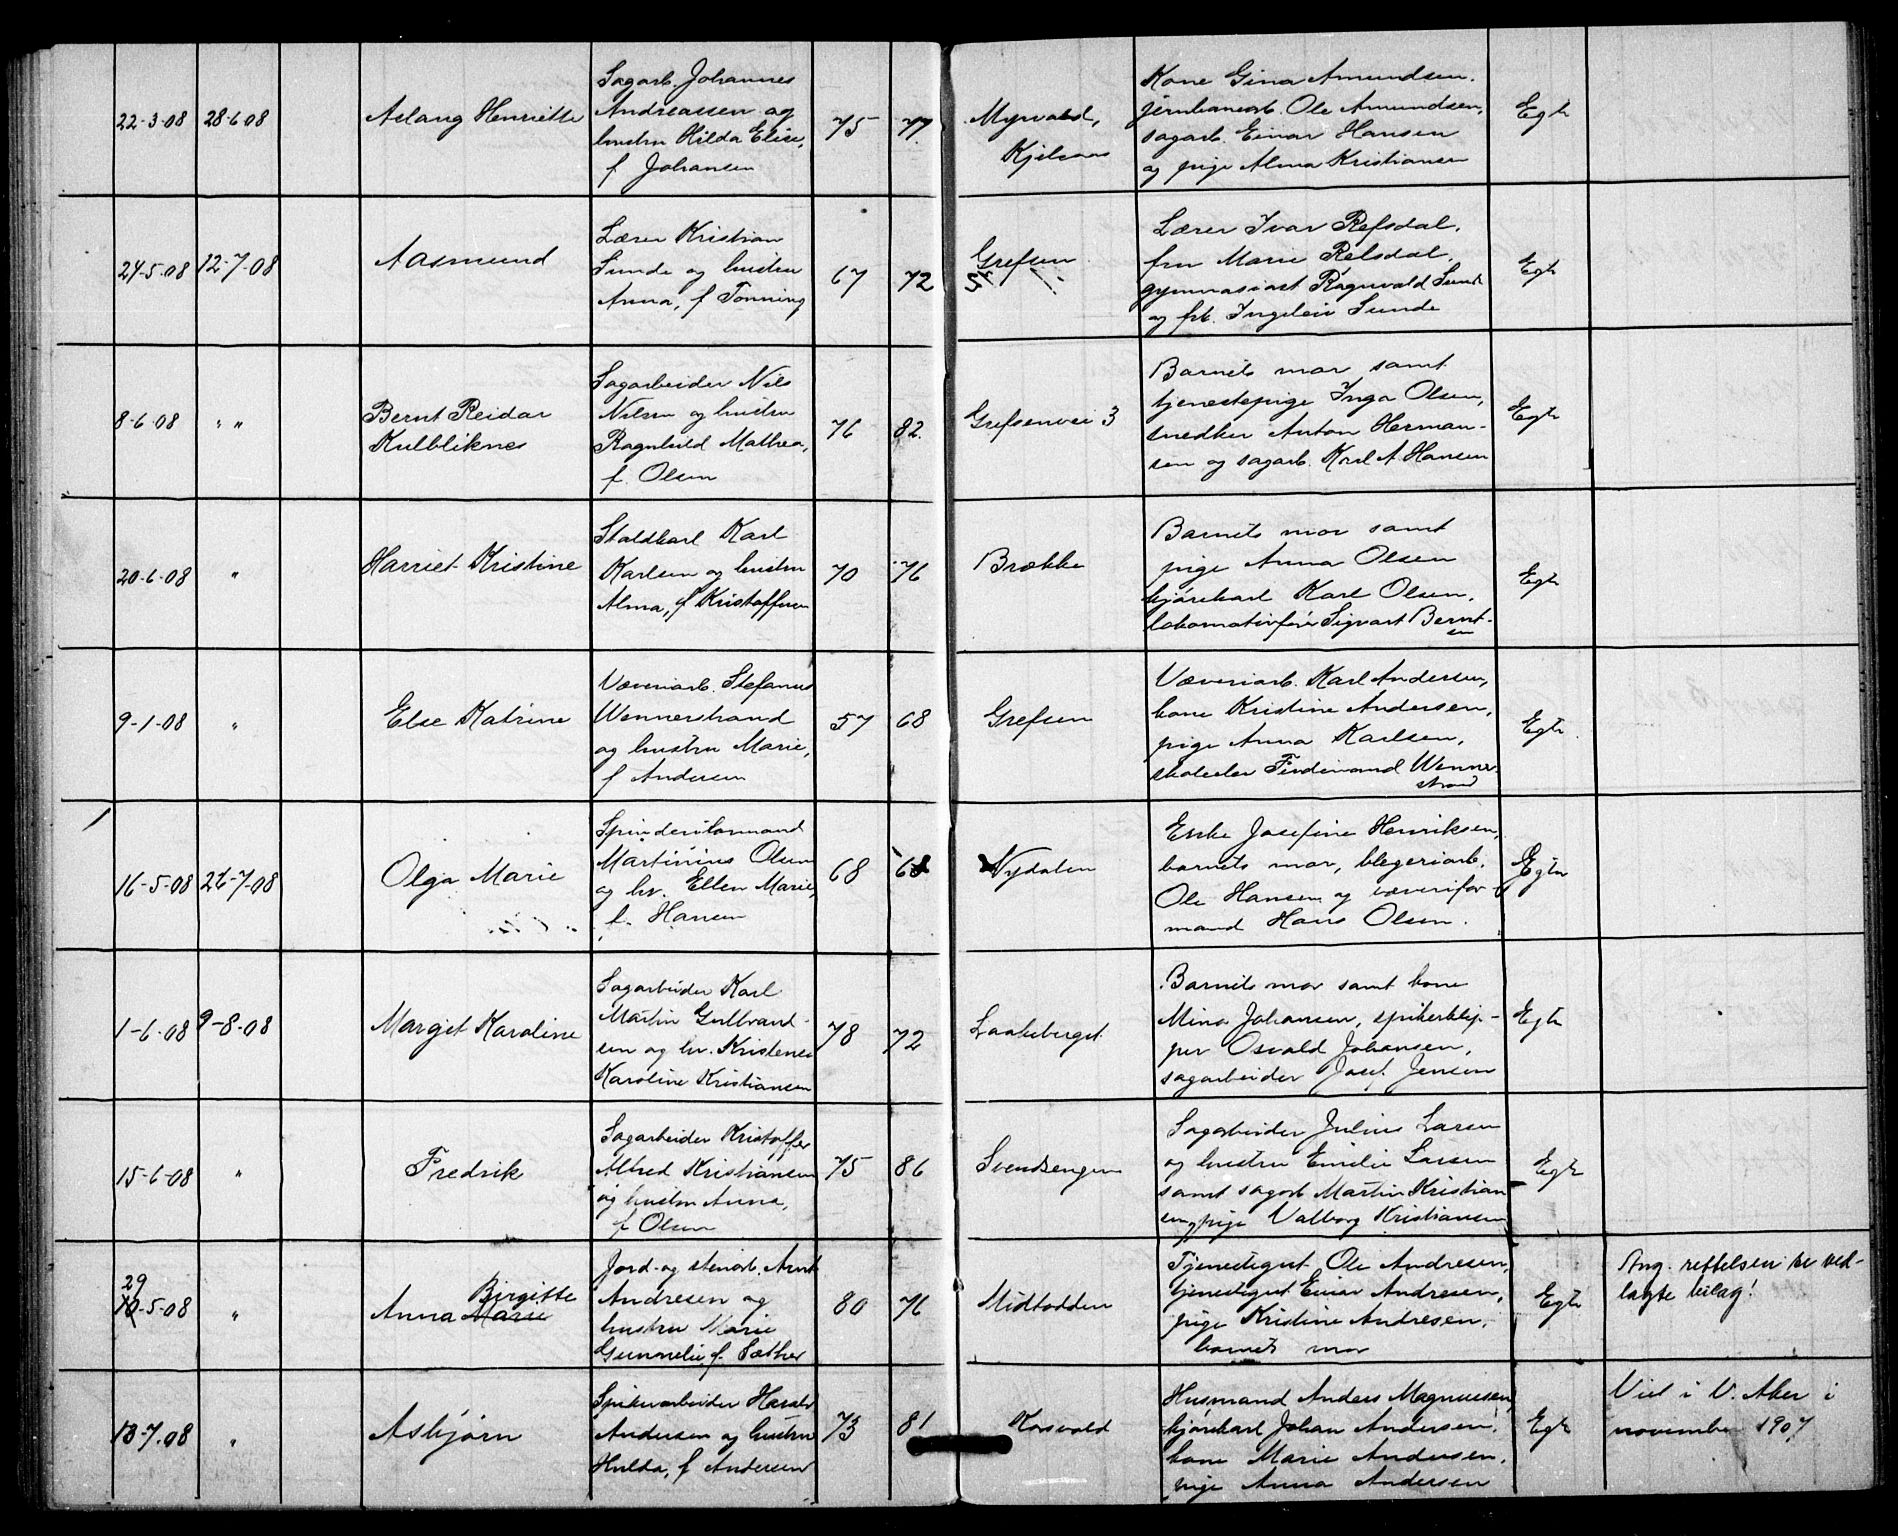 22-3-08 28-6-08 Aslaug Henriette
Sagarb. Johannes
Andreassen og
hustru Hilda Elise,
f Johansen
75 77
Myrvold,
Kjelsaas
Kone Gina Amundsen.
jernbanearb. Ole Amundsen,
sagarb. Einar Hansen
og pige Alma Kristiansen
Egte
24-5-08 12-7-08 Aasmund
Lærer Kristian
Sunde og hustru
Anna, f Tonning
67 72
Grefsen
Lærer Ivar Refsdal,
fru Marie Refsdal,
gymnasiast Ragnvald Sunde
og frk. Ingeleiv Sunde
Egte
8-6-08 " "
Bernt Reidar
Kulbliknes
Sagarbeider Nils
Nilsen og hustru
Ragnhild Mathea,
f. Olsen
76 82.
Grefsenvei 3
Barnets mor samt
tjenestepige Inga Olsen,
snedker Anton Herman-
sen og sagarb. Karl A. Hansen
Egte
20-6-08 " Harriet Kristine
Staldkarl Karl
Karlsen og hustru
Alma, f Kristoffersen
70 76
Brække
Barnets mor samt
pige Anna Olsen
kjørekarl Karl Olsen,
lokomotivfører Sigvart Bernt-
sen
Egte
9-1-08 " Else Katrine
Væveriarb. Stefanus
Wennerstrand
og hustru Marie,
f Andersen
57 68
Grefsen
Væveriarb. Karl Andersen,
kone Kristine Andersen,
pige Anna Karlsen,
skoleelev Ferdinand Wenner-
strand
Egte.
16-5-08 26-7-08 Olga Marie
Spinderiformand
Martinius Olsen
og hr. Ellen Marie,
f. Hansen
68 68
Nydalen
Enke Josefine Henriksen,
barnets mor, blegeriarb.
Ole Hansen og væverifor-
mand Hans Olsen.
Egte
1-6-08 9-8-08 Margit Karoline
Sagarbeider Karl
Martin Gulbrand-
sen og hu. Kristense
Karoline Kristiansen
78 72
Laakeberget
Barnets mor samt kone
Mina Johansen, spikerklip-
per Osvald Johansen,
sagarbeider Josef Jensen
Egte
15-6-08 " Fredrik
Sagarbeider Kristoffer
Alfred Kristiansen
og hustru Anna,
f Olsen
75 86
Svendsengen
Sagarbeider Julius Larsen
og hustru Emilie Larsen
samt sagarb Martin Kristian
sen, pige Valborg Kristiansen
Egte
29
10-5-08 "
Birgitte
Anna Marie
Jord- og stenarb. Arnt
Andresen og
hustru Marie
Gunnelie f. Sæther
80 76
Midtodden
Tjenestegut Ole Andresen,
tjenestegut Einar Andresen,
pige Kristine Andresen,
barnets mor
Egte
Ang. rettelsen se ved-
lagte bilag!
13-7.08 " Asbjørn
Spikerarbeider Harald
Andersen og hustru
Hulda, f Andersen
73 81
Korsvold
Husmand Anders Magnussen,
kjørekarl Johan Andersen,
kone Marie Andersen,
pige Anna Andersen
Egte
Viet i V. Aker i
november 1907